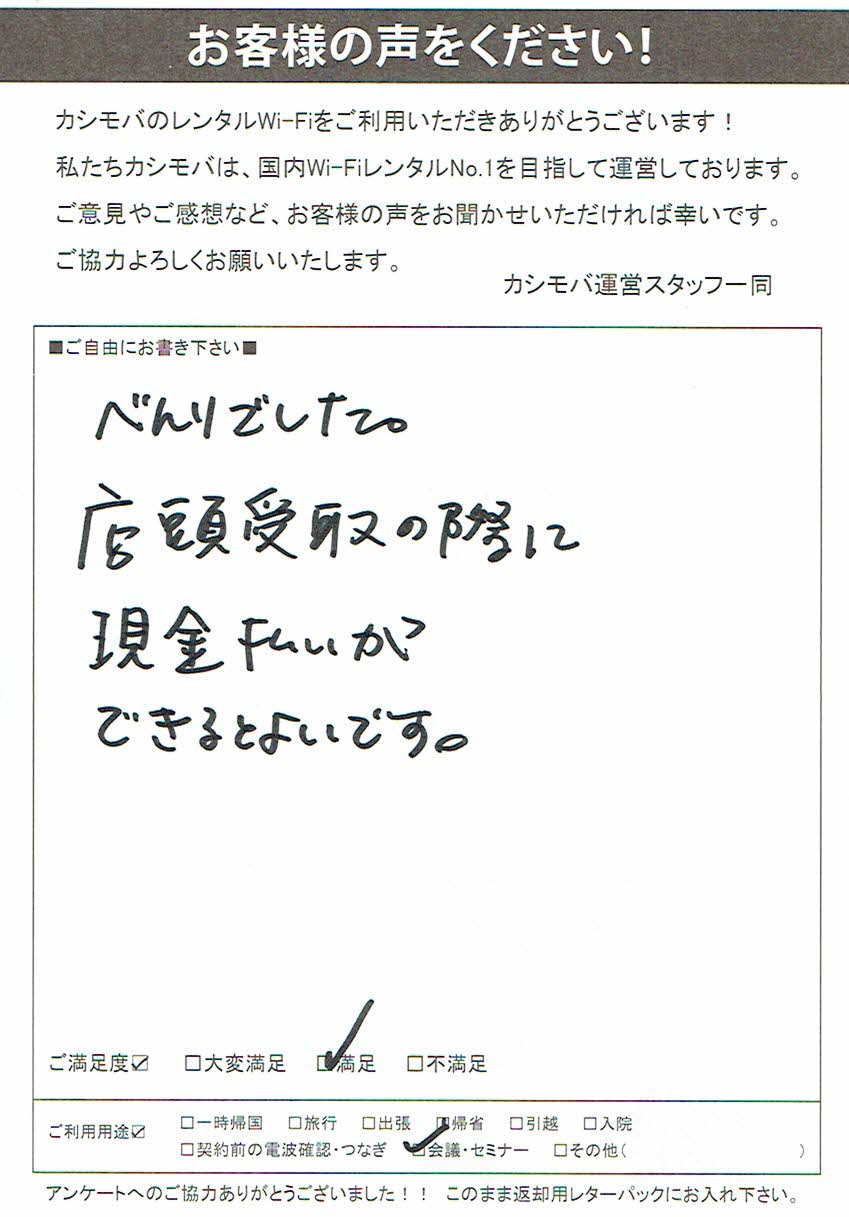 お客様の声をください!
カシモバのレンタルWi-Fiをご利用いただきありがとうございます！
私たちカシモバは、国内Wi-FiレンタルNo.1を目指して運営しております。
ご意見やご感想など、お客様の声をお聞かせいただければ幸いです。
ご協力よろしくお願いいたします。
カシモバ運営スタッフ一同
■ご自由にお書き下さい■
べんりでした。
店頭受取の際に
現金払いが
できるとよいです。
ご満足度☑ □大変満足 ☑満足 □不満足
ご利用用途☑ □一時帰国 □旅行 □出張 □帰省 □引越 □入院
□契約前の電波確認・つなぎ ☑会議・セミナー □その他( )
アンケートへのご協力ありがとうございました！！ このまま返却用レターパックにお入れ下さい。